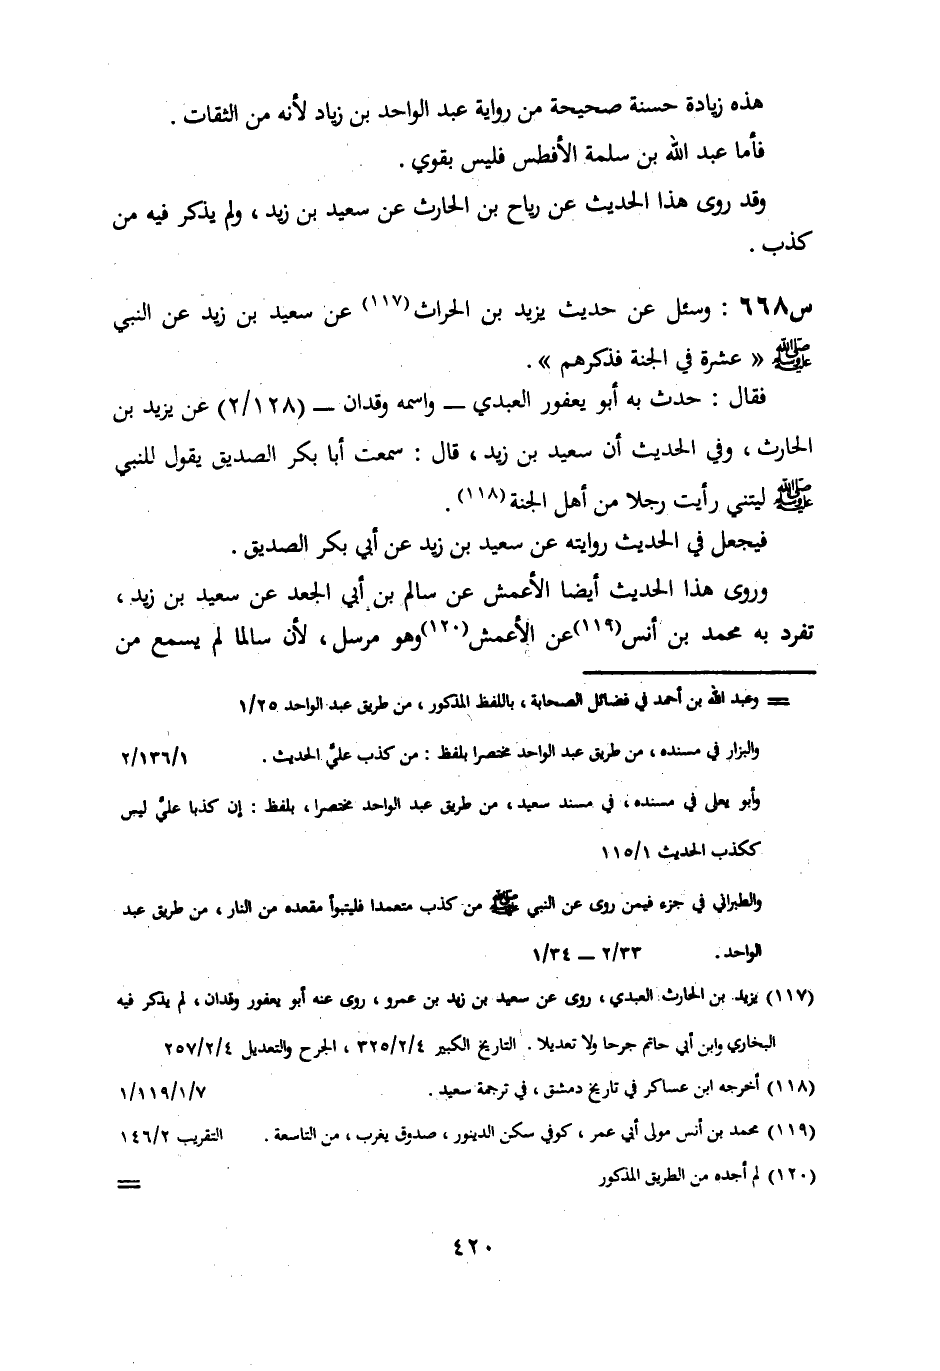 هذه زيادة حسنة صحيحة من رواية عبد الواحد بن زياد لأنه من الثقات .
فأما عبد الله بن سلمة الأفطس فليس بقوي .
وقد روى هذا الحديث عن رياح بن الحارث عن سعيد بن زيد ، ولم يذكر فيه من
كذب .
س٦٦٨ : وسئل عن حديث يزيد بن الحراث(١١٧) عن سعيد بن زيد عن النبي
ﷺ « عشرة في الجنة فذكرهم » .
فقال : حدث به أبو يعفور العبدي ــ واسمه وقدان ــ (٢/١٢٨) عن يزيد بن
الحارث ، وفي الحديث أن سعيد بن زيد ، قال : سمعت أبا بكر الصديق يقول للنبي
ﷺ ليتني رأيت رجلا من أهل الجنة(١١٨) .
فيجعل في الحديث روايته عن سعيد بن زيد عن أبي بكر الصديق .
وروى هذا الحديث أيضا الأعمش عن سالم بن أبي الجعد عن سعيد بن زيد ،
تفرد به محمد بن أنس(١١٩)عن الأعمش(١٢٠)وهو مرسل ، لأن سالما لم يسمع من
= وعبد الله بن أحمد في فضائل الصحابة ، باللفظ المذكور ، من طريق عبد الواحد ١/٢٥
والبزار في مسنده ، من طريق عبد الواحد مختصرا بلفظ : من كذب عليَّ الحديث . ٢/١٣٦/١
وأبو يعلى في مسنده ، في مسند سعيد ، من طريق عبد الواحد مختصرا ، بلفظ : إن كذبا عليَّ ليس
ككذب الحديث ١١٥/١
والطبراني في جزء فيمن روى عن النبي ﷺ من كذب متعمدا فليتبوأ مقعده من النار ، من طريق عبد
الواحد . ٢/٣٣ ــ ١/٣٤
(١١٧) يزيد بن الحارث العبدي ، روى عن سعيد بن زيد بن عمرو ، روى عنه أبو يعفور وقدان ، لم يذكر فيه
البخاري وابن أبي حاتم جرحا ولا تعديلا . التاريخ الكبير ٣٢٥/٢/٤ ، الجرح والتعديل ٢٥٧/٢/٤
(١١٨) أخرجه ابن عساكر في تاريخ دمشق ، في ترجمة سعيد . ١/١١٩/١/٧
(١١٩) محمد بن أنس مولى أبي عمر ، كوفي سكن الدينور ، صدوق يغرب ، من التاسعة . التقريب ١٤٦/٢
(١٢٠) لم أجده من الطريق المذكور =
٤٢٠